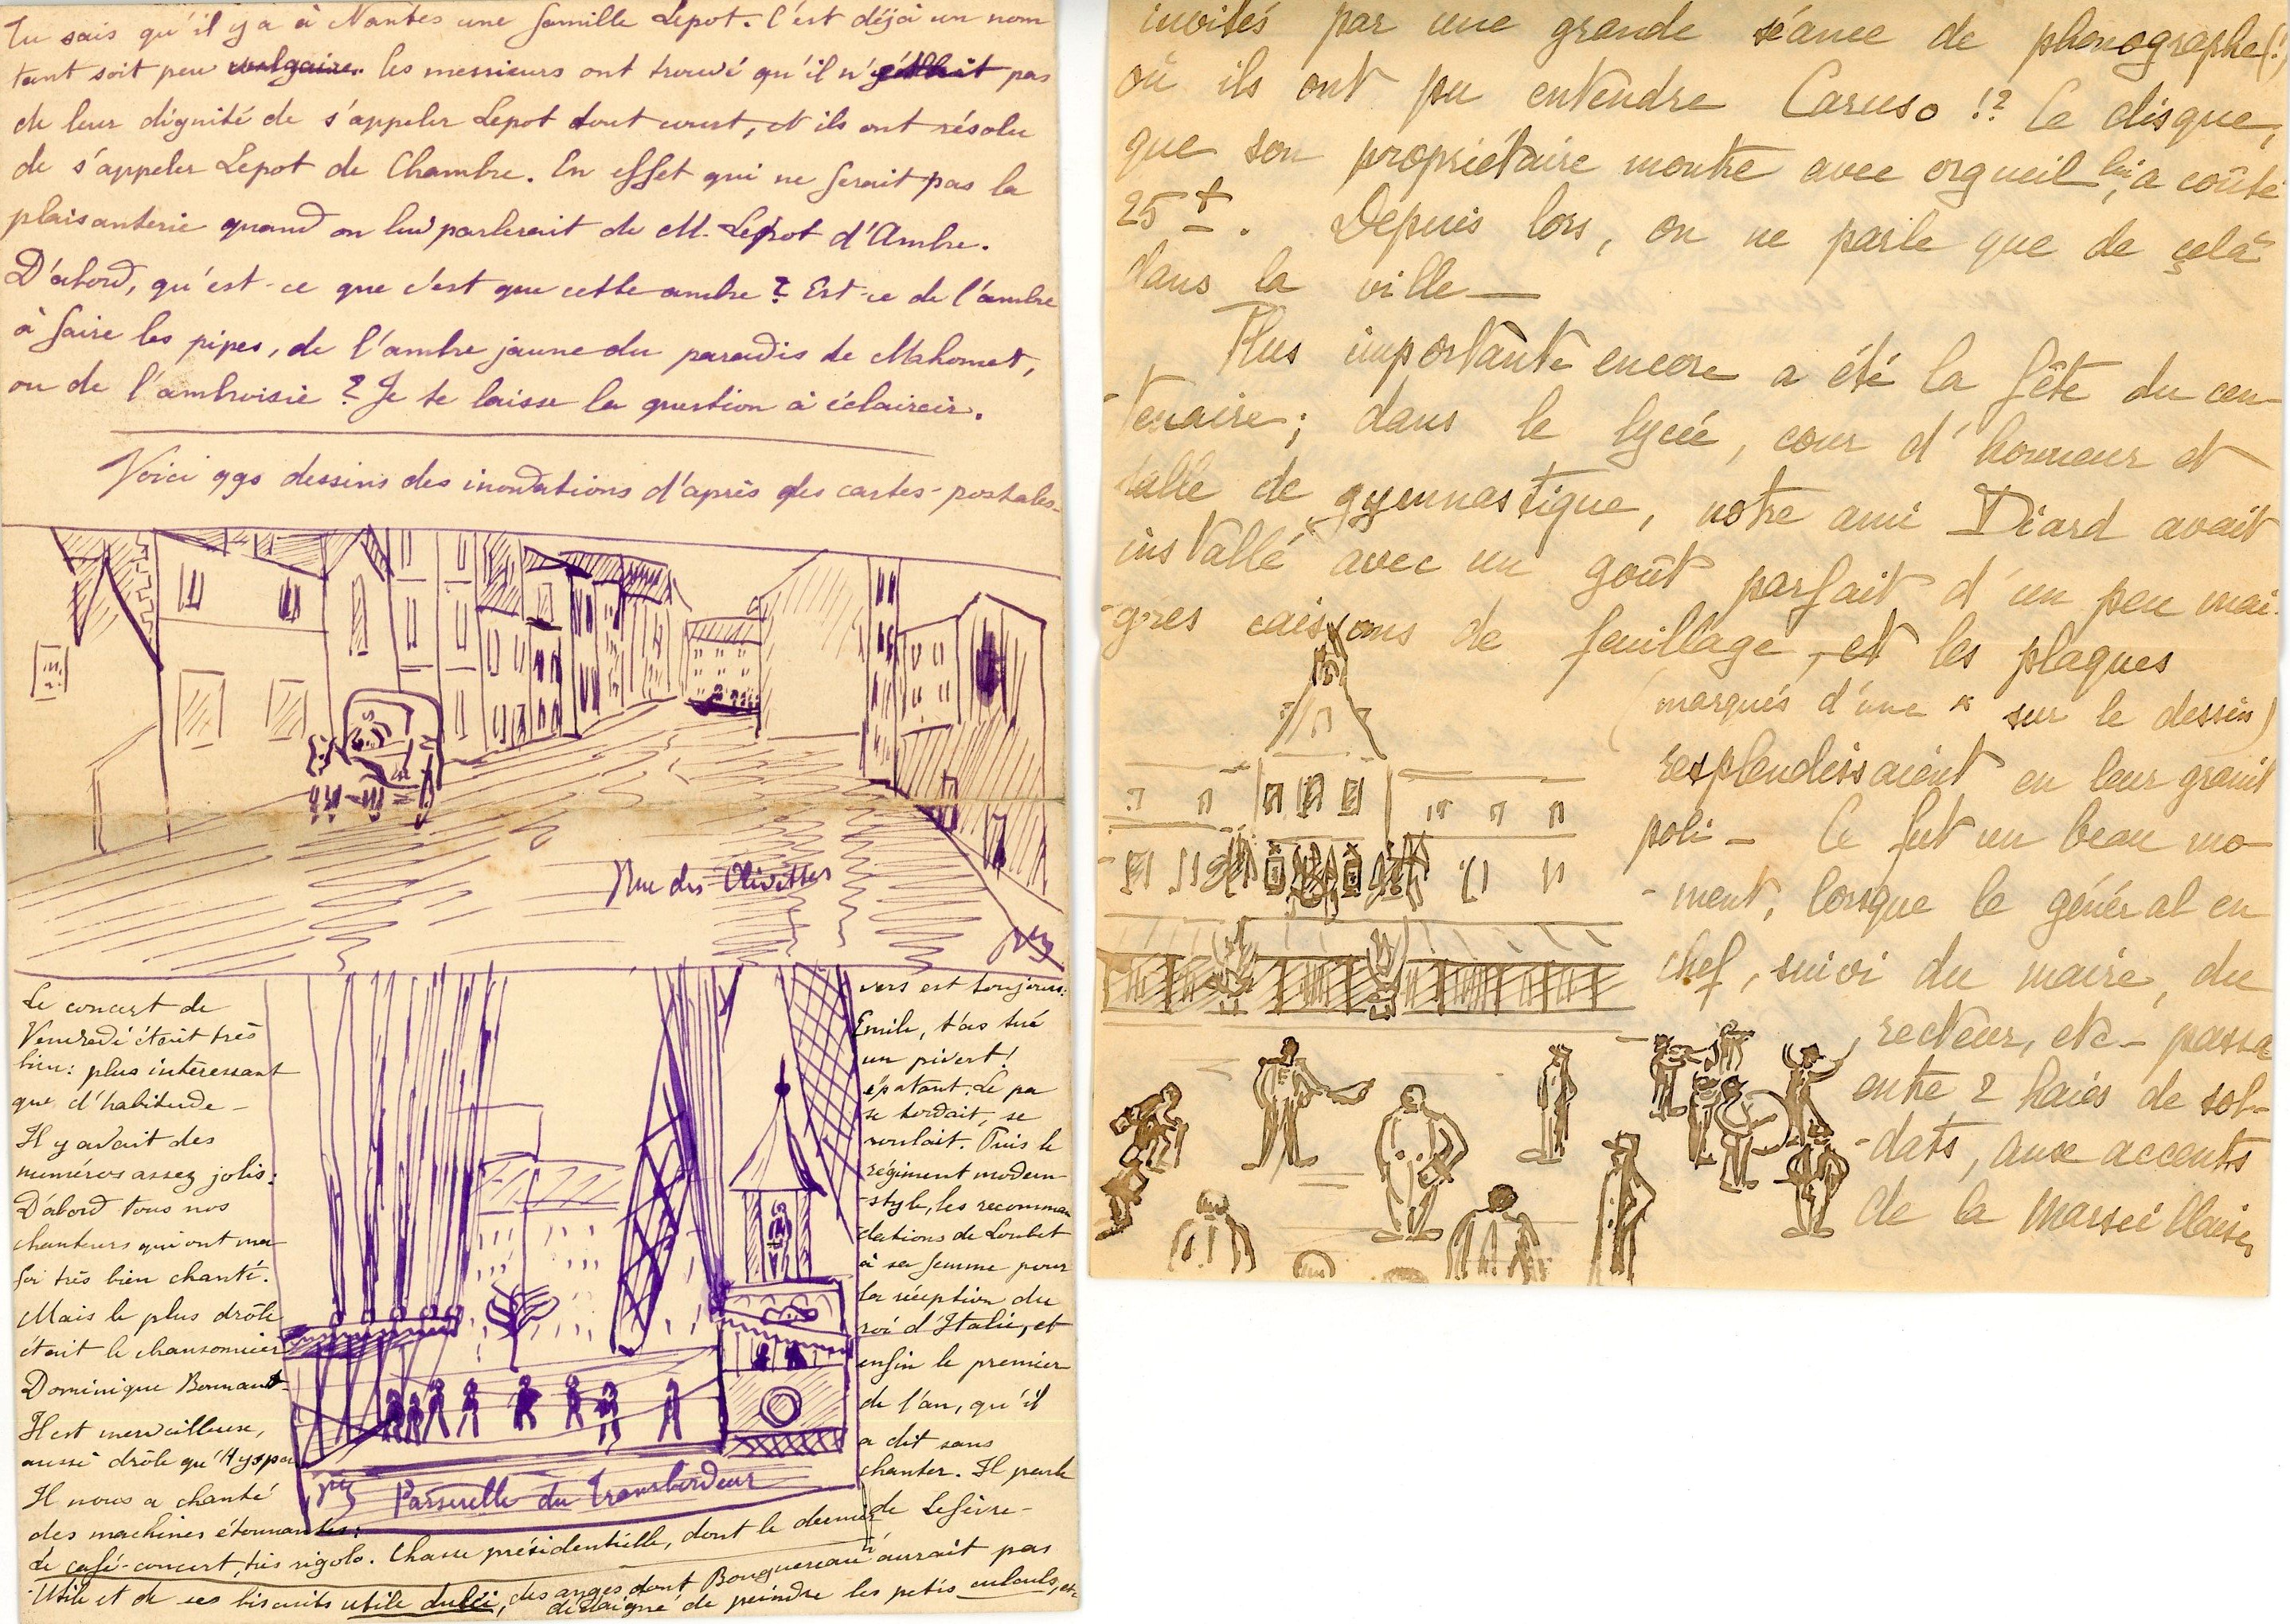 Tu sais qu'il y a à Nantes une famille Lepot. C'est déjà un nom
tant soit peu vulgaire. les messieurs ont trouvé qu'il n'était pas
de leur dignité de s'appeler Lepot tout court, et ils ont résolu
de s'appeler Lepot de Chambre. En effet qui ne ferait pas la
plaisanterie quand on lui parlerait de M. Lepot d'Ambre.
D'abord, qu'est-ce que c'est que cette ambre ? Est-ce de l'ambre
à faire les pipes, de l'ambre jaune du paradis de Mahomet,
ou de l'ambroisie ? Je te laisse la question à éclaircir.
Voici qqs dessins des inondations d'après des cartes-postales-
Rue des Olivettes
Le concert de
Vendredi était très
bien: plus intéressant
que d'habitude -
Il y avait des
numéros assez jolis:
D'abord tous nos
chanteurs qui ont ma
foi très bien chanté.
Mais le plus drôle
était le chansonnier
Dominique Bonnaud-
Il est merveilleux,
aussi drôle qu'Hyspa
Il nous a chanté
des machines étonnantes:
Le café-concert, très rigolo. Chasse présidentielle, dont le dernier
vers est toujours:
Emile, t'as tué
un pivert!
épatant. Le pa
se tordait, se
roulait. Puis le
régiment modern-
-style, les recomman
dations de Loubet
à sa femme pour
la réception du
roi d'Italie, et
enfin le premier
de l'an, qu'il
a dit sans
chanter. Il parle
de Lefèvre-
Utile et de ses biscuits utile dulci, des anges dont Bouguereau n'aurait pas
dédaigné de peindre les petis culculs, etc
Passerelle du Transbordeur
invités par une grande séance de phonographe(!)
où ils ont pu entendre Caruso !? Ce disque,
que son propriétaire montre avec orgueil, lui a coûté
25 f. Depuis lors, on ne parle que de çelà
dans la ville —
Plus importante encore a été la fête du cen-
-tenaire; dans le lycée, cour d'honneur et
salle de gymnastique, notre ami Diard avait
installé avec un goût parfait d'un peu mai-
-gres caissons de feuillage, et les plaques
(marqués d'une x sur le dessin)
resplendissaient en leur granit
poli - Ce fut un beau mo-
-ment, lorsque le général en
chef, suivi du maire, du
recteur, etc - passa
entre 2 haies de sol-
-dats, aux accents
de la Marseillaise,